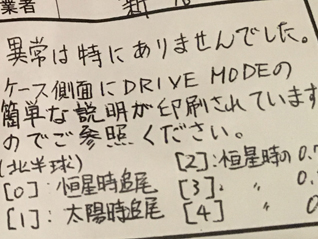 業者
異常は特にありませんでした。
ケース側面にDRIVE MODEの
簡単な説明が印刷されています
のでご参照ください。
(北半球) [2]:恒星時の0.
[0]:恒星時追尾 [3]. 〃 0.
[1]:太陽時追尾 [4] 〃 0